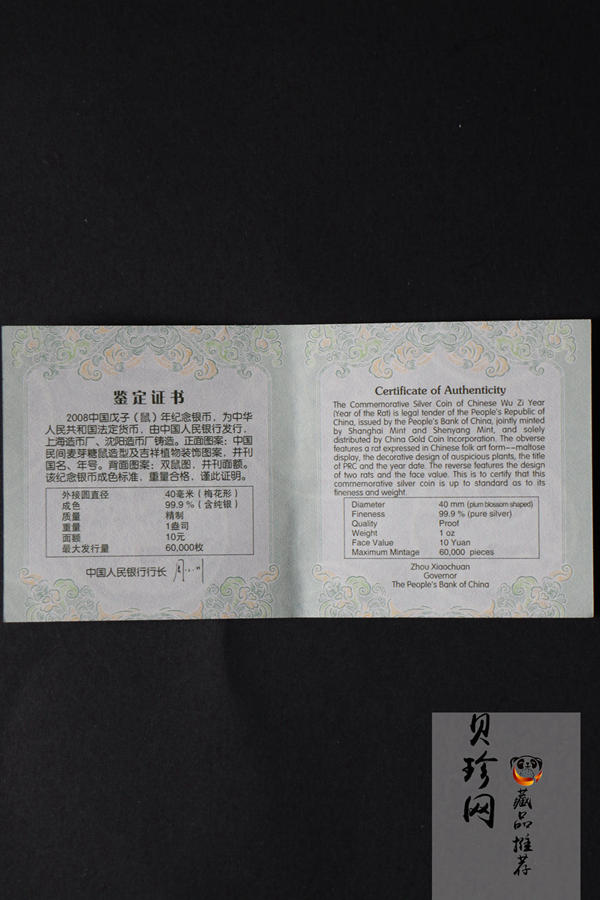 鉴定证书
2008中国戊子（鼠）年纪念银币，为中华
人民共和国法定货币，由中国人民银行发行，
上海造币厂、沈阳造币厂铸造。正面图案：中国
民间麦芽糖鼠造型及吉祥植物装饰图案，并刊
国名、年号。背面图案：双鼠图，并刊面额。
该纪念银币成色标准，重量合格，谨此证明。
外接圆直径 40毫米（梅花形）
成色 99.9％（含纯银）
质量 精制
重量 1盎司
面额 10元
最大发行量 60,000枚
中国人民银行行长
Certificate of Authenticity
The Commemorative Silver Coin of Chinese Wu Zi Year
(Year of the Rat) is legal tender of the People's Republic of
China, issued by the People's Bank of China, jointly minted
by Shanghai Mint and Shenyang Mint, and solely
distributed by China Gold Coin Incorporation. The obverse
features a rat expressed in Chinese folk art form--maltose
display, the decorative design of auspicious plants, the title
of PRC and the year date. The reverse features the design
of two rats and the face value. This is to certify that this
commemorative silver coin is up to standard as to its
fineness and weight.
Diameter 40 mm (plum blossom shaped)
Fineness 99.9 % (pure silver)
Quality Proof
Weight 1 oz
Face Value 10 Yuan
Maximum Mintage 60,000 pieces
Zhou Xiaochuan
Governor
The People's Bank of China
贝珍网
藏品推荐